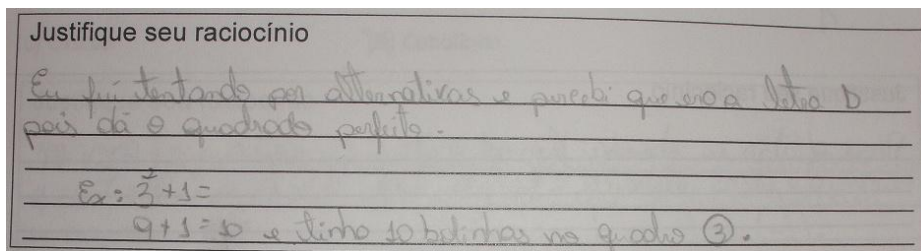 Justifique seu raciocínio
Eu fui tentando por alternativas e percebi que era a letra D
pois dá o quadrado perfeito.
Ex: 3²+1=
9+1=10 e tinha 10 bolinhas no quadro ③.